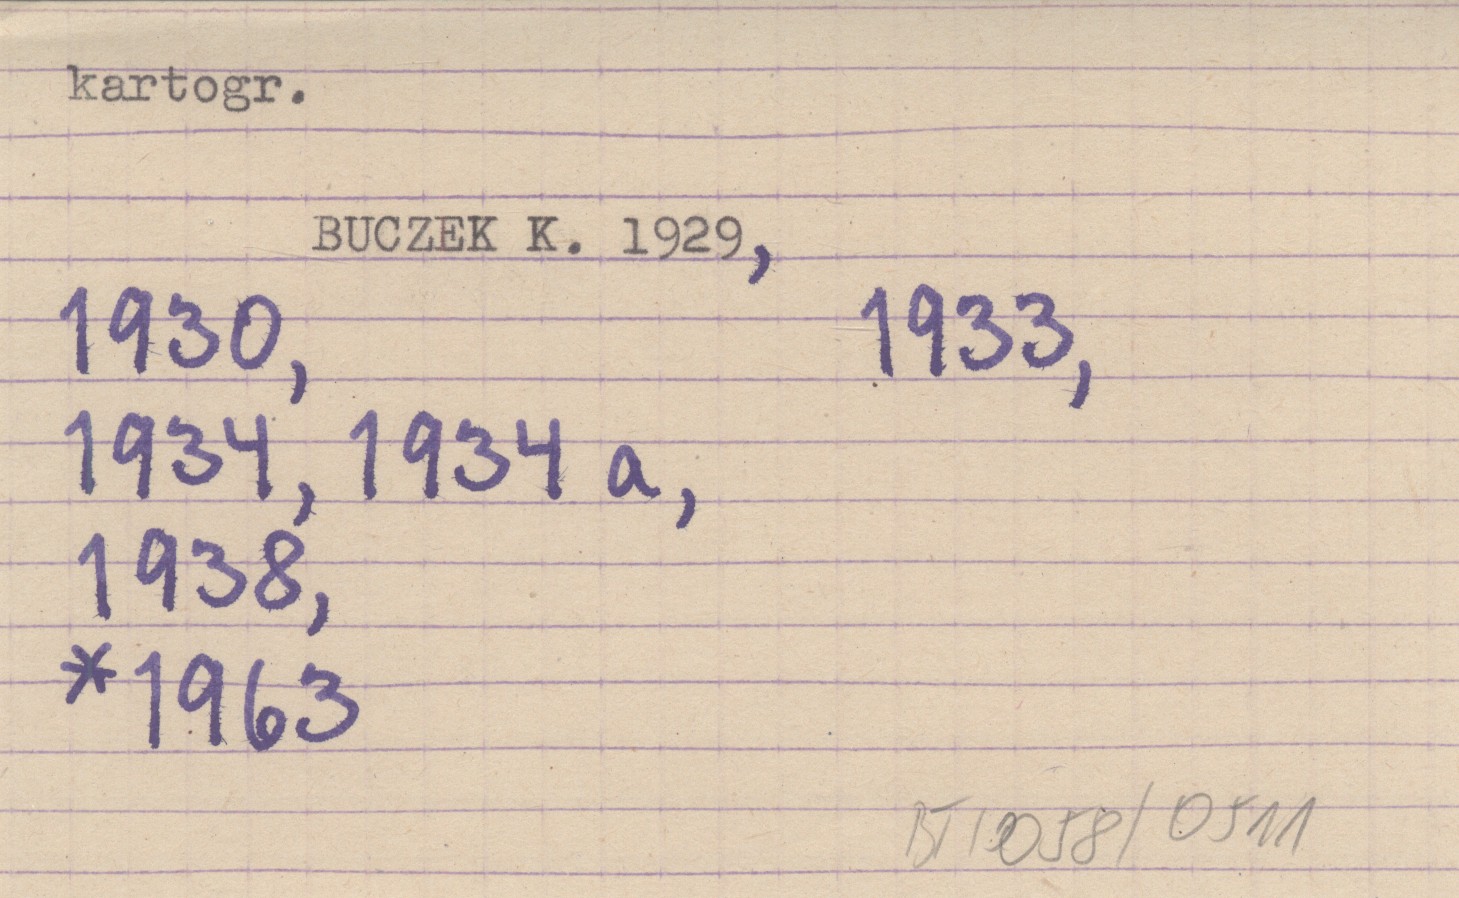 kartogr.
BUCZEK K. 1929,
1930, 1933,
1934, 1934 a,
1938,
*1963
BT1058/0511